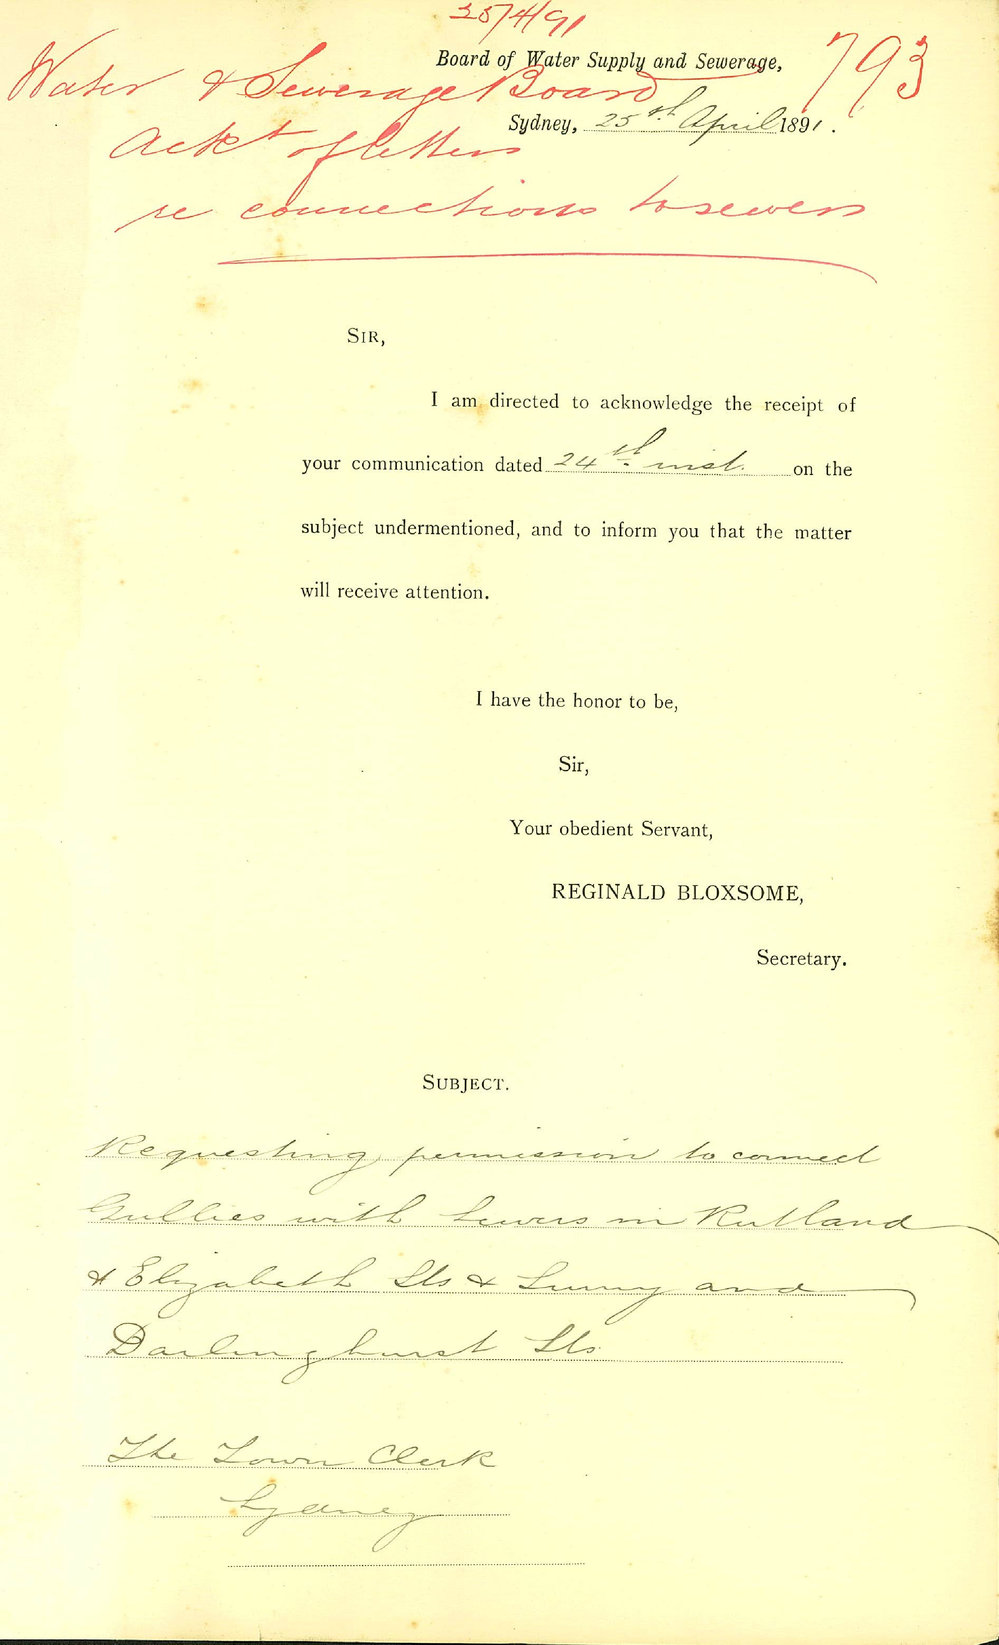 25/4/91
Board of Water Supply and Sewerage,
793
Water & Sewerage Board
Sydney, 25th April 1891.
Ackt of letters
re connections to sewers
SIR,
I am directed to acknowledge the receipt of
your communication dated 24th inst. on the
subject undermentioned, and to inform you that the matter
will receive attention.
I have the honor to be,
Sir,
Your obedient Servant,
REGINALD BLOXSOME,
Secretary.
SUBJECT.
Requesting permission to connect
Gullies with Sewers in Rutland
& Elizabeth Sts & Surry and
Darlinghurst Sts.
The Town Clerk
Sydney